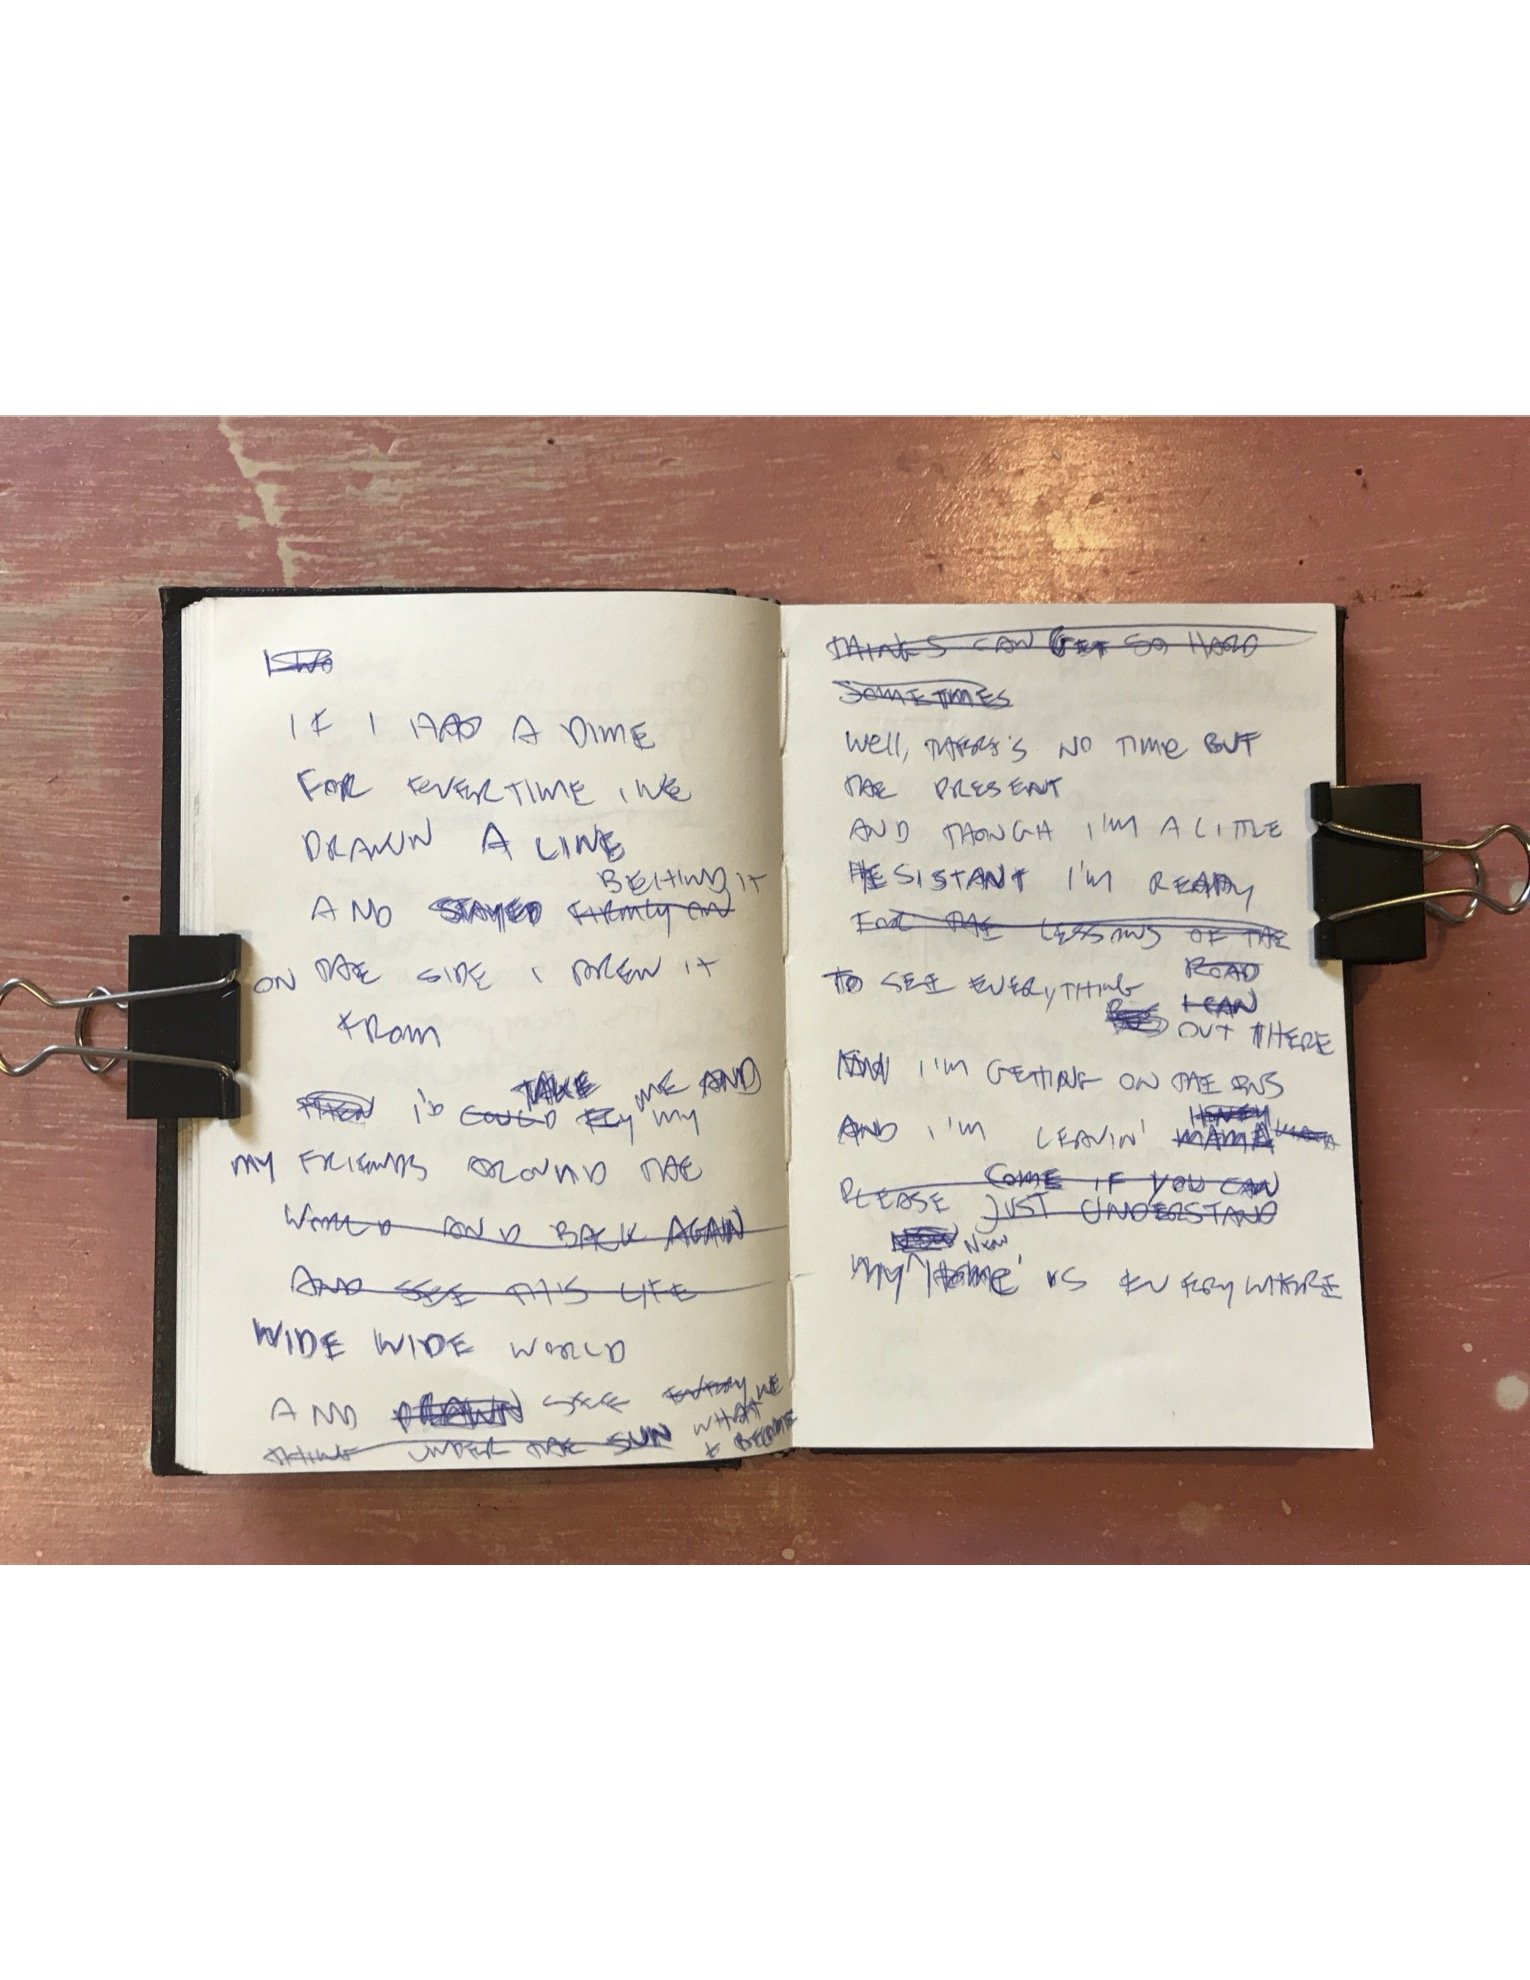 IF I HAD A DIME
FOR EVERTIME I'VE
DRAWN A LINE
BEHIND IT
AND STAYED FIRMLY ON
ON THE SIDE I DREW IT
FROM
TAKE ME AND
THEN I'D COULD FLY MY
MY FRIENDS AROUND THE
WORLD AND BACK AGAIN
AND SEE THIS LIFE
WIDE WIDE WORLD
AND DRAWN SEE EVERY WE
THING UNDER THE SUN WHAT
BECOME
THINGS CAN GET SO HARD
SOMETIMES
WELL, THERE'S NO TIME BUT
THE PRESENT
AND THOUGH I'M A LITTLE
RESISTANT I'M READY
FOR THE LESSONS OF THE
ROAD
TO SEE EVERYTHING
I CAN
OUT THERE
I'M GETTING ON THE BUS
HONEY
AND I'M LEAVIN' MAMA
COME IF YOU CAN
PLEASE JUST UNDERSTAND
NOW NEW
MY 'HOME' IS EVERYWHERE